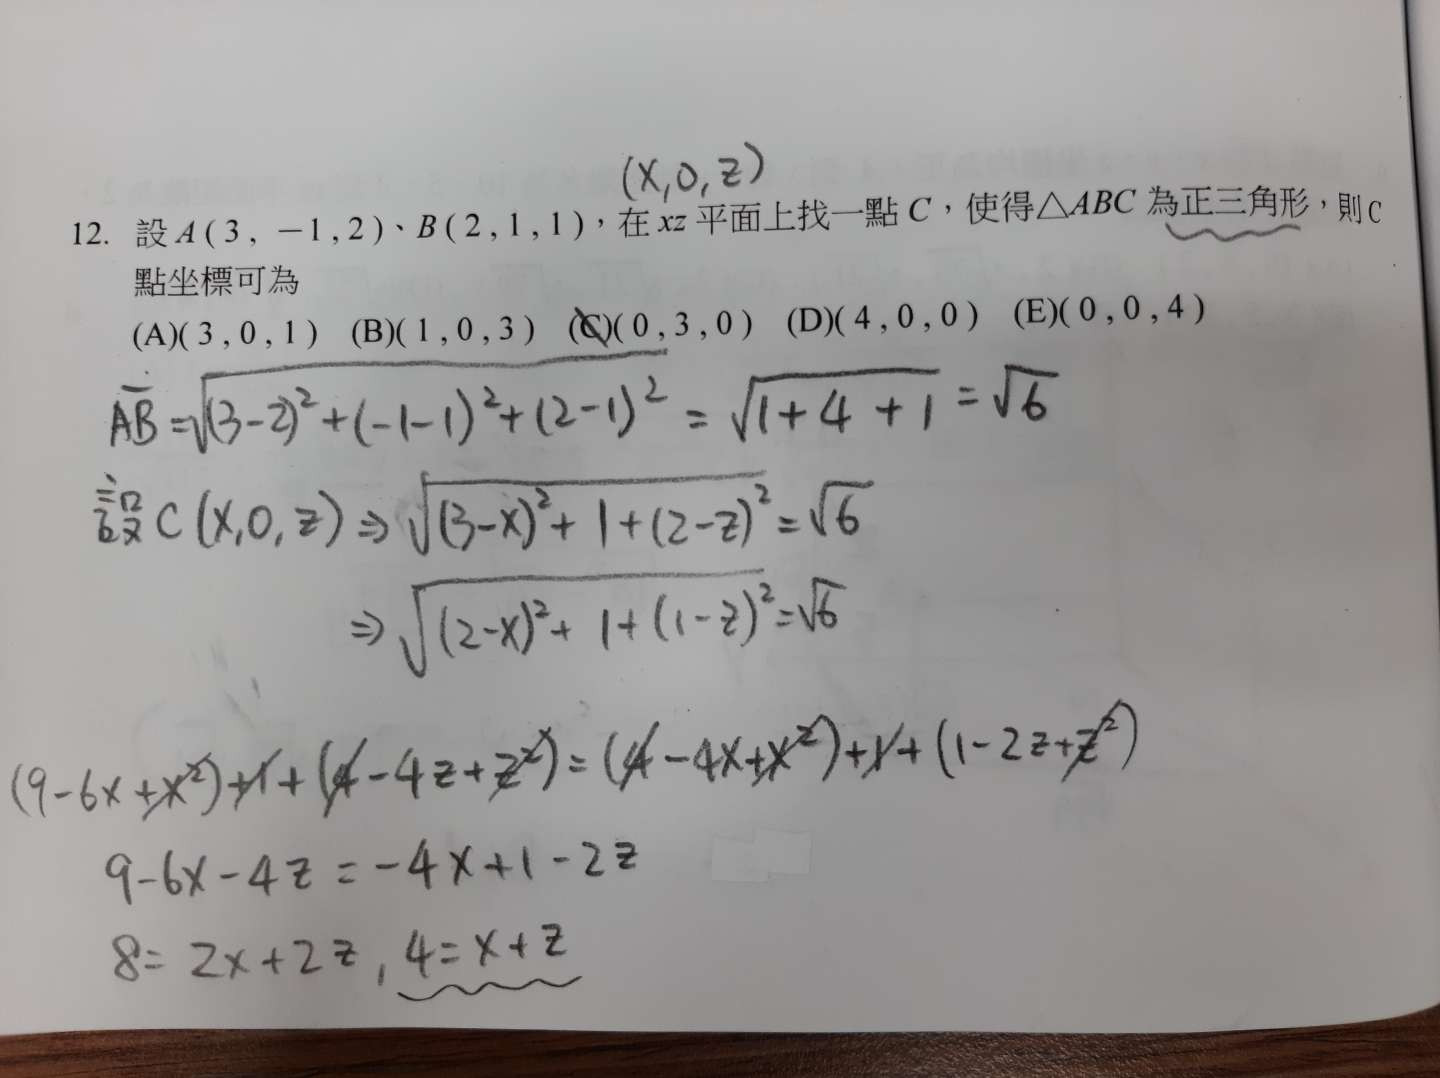 (x,0,z)
12. 設 A ( 3 , −1 , 2 )、B ( 2 , 1 , 1 )，在 xz 平面上找一點 C，使得△ABC 為正三角形，則C
點坐標可為
(A)( 3 , 0 , 1 ) (B)( 1 , 0 , 3 ) (C)( 0 , 3 , 0 ) (D)( 4 , 0 , 0 ) (E)( 0 , 0 , 4 )
AB = √((3-2)²+(-1-1)²+(2-1)²) = √(1+4+1) = √6
設 C (x,0,z) ⇒ √((3-x)²+1+(2-z)²) = √6
⇒ √((2-x)²+1+(1-z)²) = √6
(9-6x+x²)+1+(4-4z+z²)=(4-4x+x²)+1+(1-2z+z²)
9-6x-4z=-4x+1-2z
8=2x+2z, 4=x+z